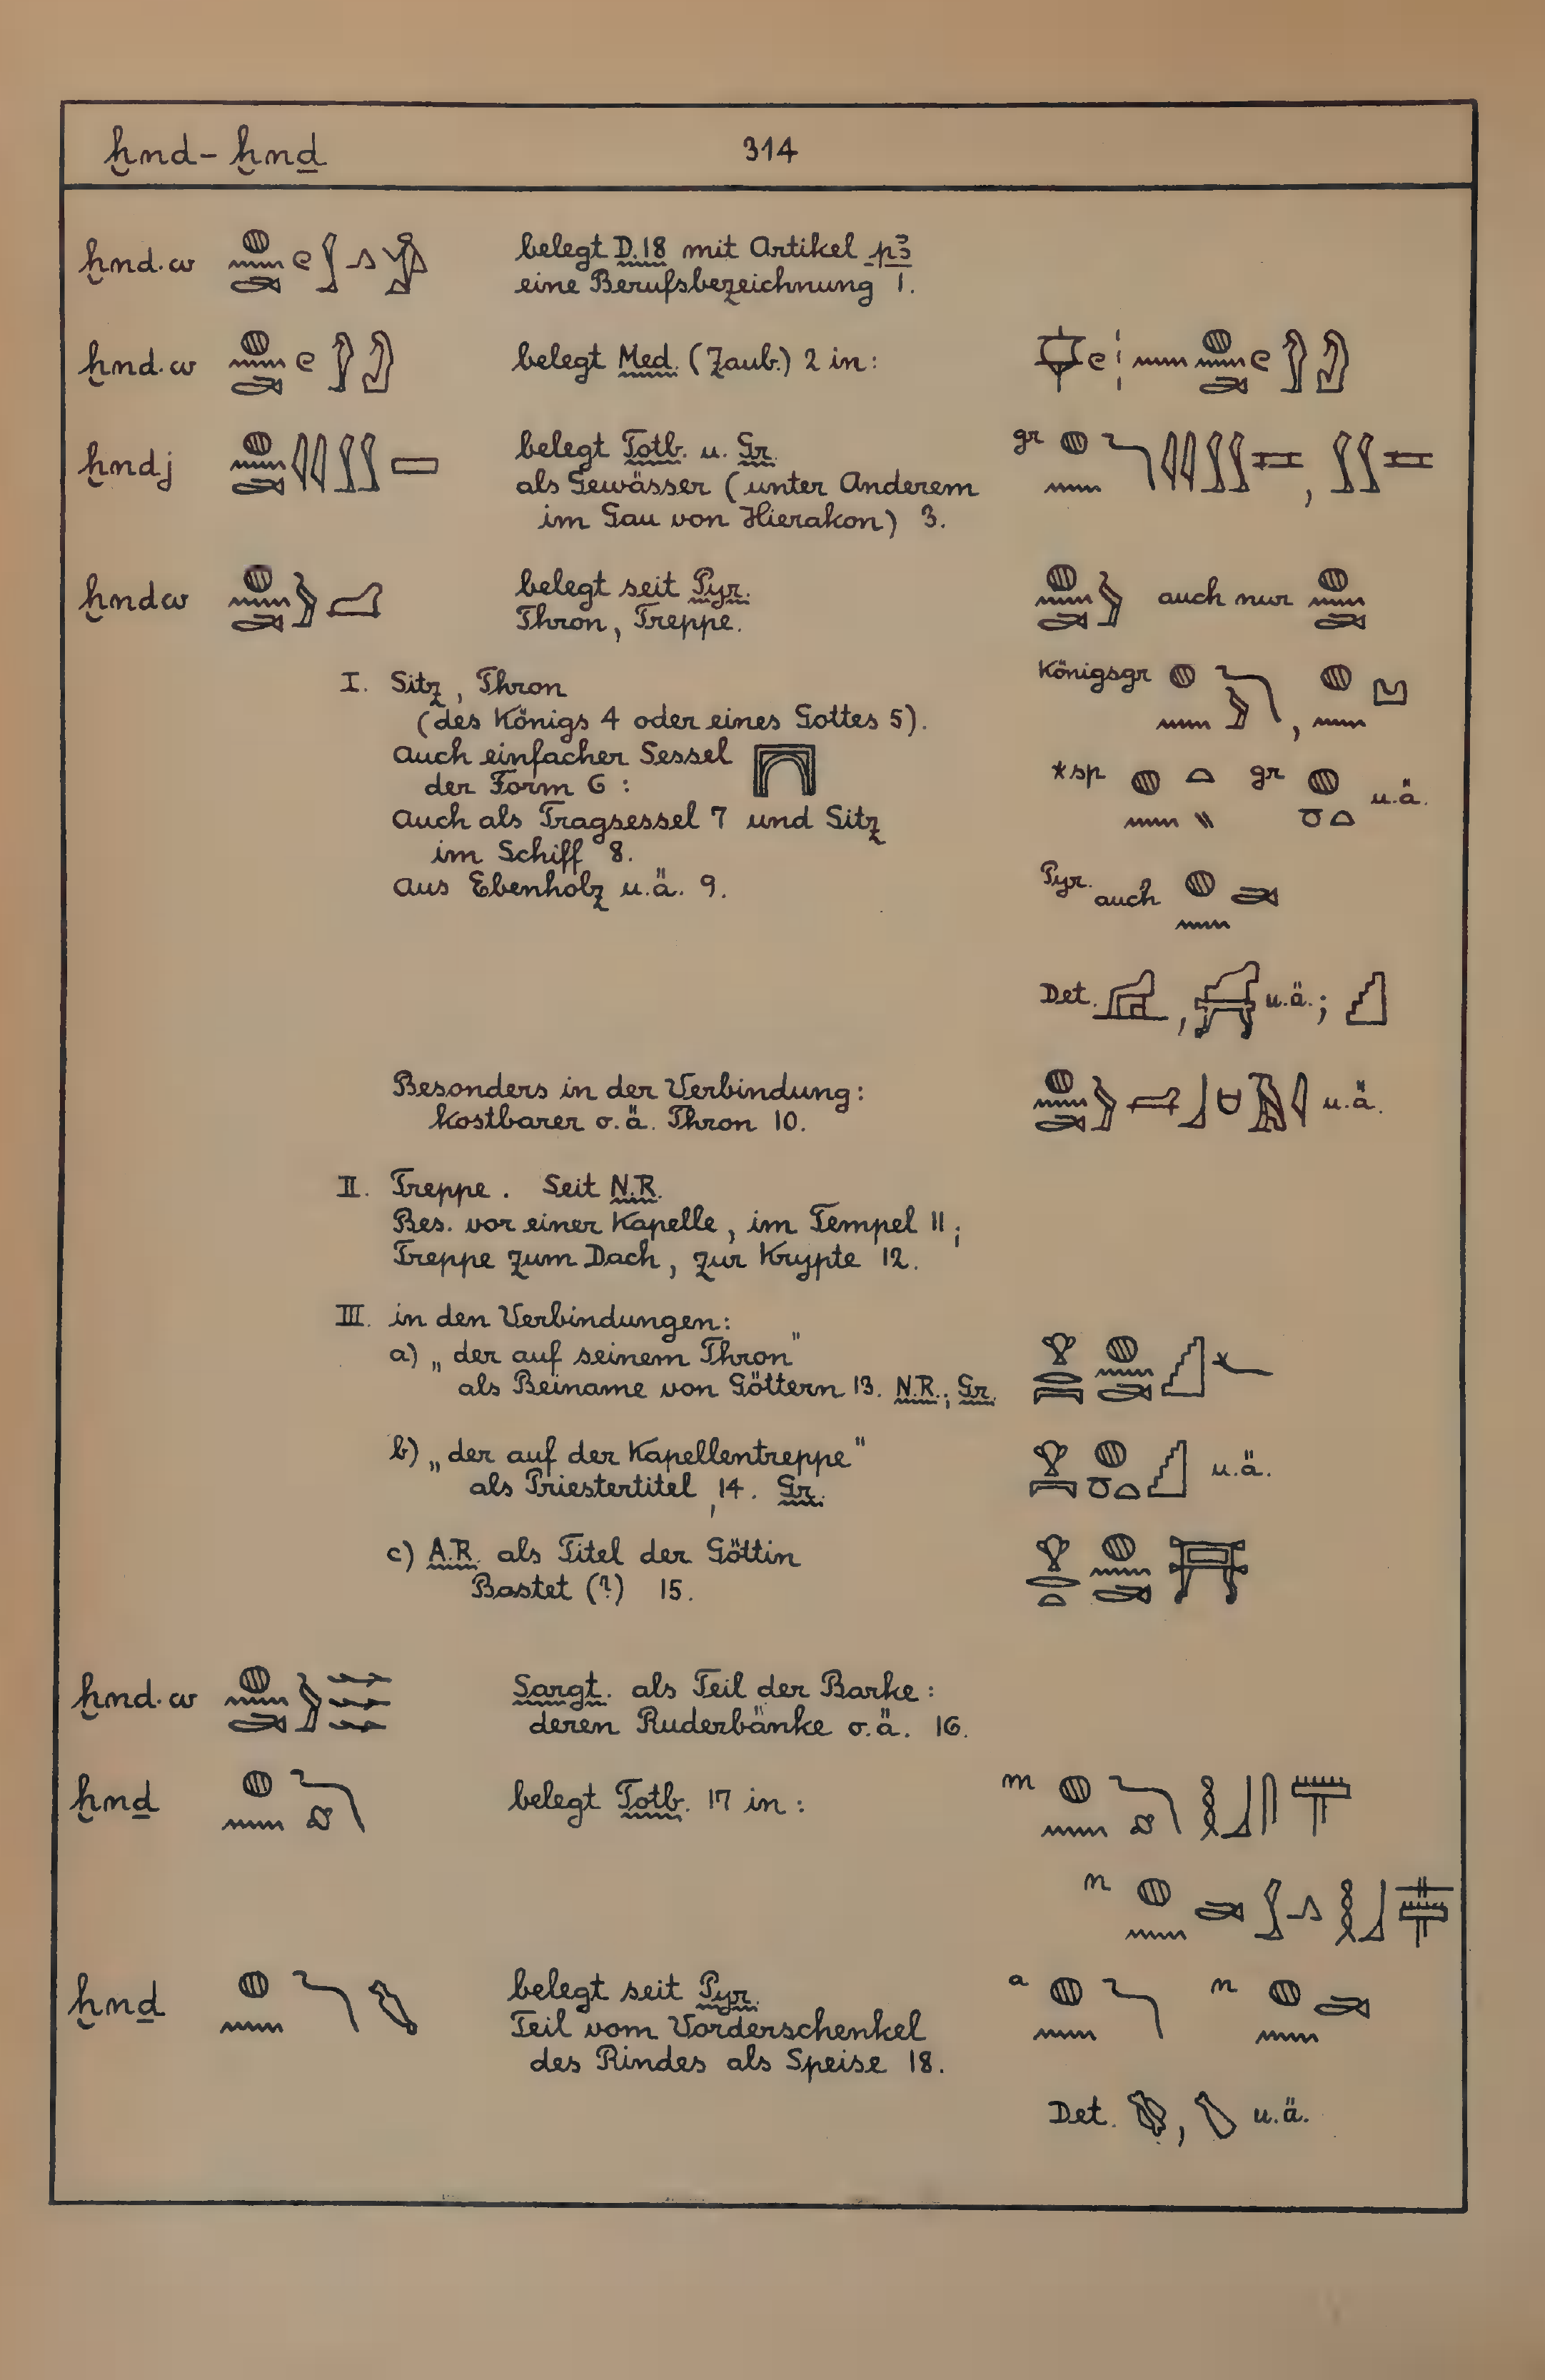 ḫnd - ḫnḏ 314
ḫnd·w belegt D.18 mit Artikel pꜣ
eine Berufsbezeichnung 1.
ḫnd·w belegt Med. (Zaub.) 2 in:
ḫndj belegt Totb. u. Gr. gr
als Gewässer (unter Anderem
im Gau von Hierakon) 3.
ḫndw belegt seit Pyr. auch nur
Thron, Treppe.
I. Sitz, Thron Königsgr
(des Königs 4 oder eines Gottes 5).
auch einfacher Sessel
der Form 6 : *sp gr u.ä.
auch als Tragsessel 7 und Sitz
im Schiff 8.
aus Ebenholz u.ä. 9. Pyr. auch
Det. , u.ä.;
Besonders in der Verbindung:
kostbarer o.ä. Thron 10. u.ä.
II. Treppe. Seit N.R.
Bes. vor einer Kapelle, im Tempel 11;
Treppe zum Dach, zur Krypte 12.
III. in den Verbindungen:
a) „der auf seinem Thron"
als Beiname von Göttern 13. N.R.; Gr.
b) „der auf der Kapellentreppe"
als Priestertitel 14. Gr. u.ä.
c) A.R. als Titel der Göttin
Bastet (?) 15.
ḫnd·w Sargt. als Teil der Barke:
deren Ruderbänke o.ä. 16.
ḫnḏ belegt Totb. 17 in: m
n
ḫnḏ belegt seit Pyr. a n
Teil vom Vorderschenkel
des Rindes als Speise 18.
Det. , u.ä.